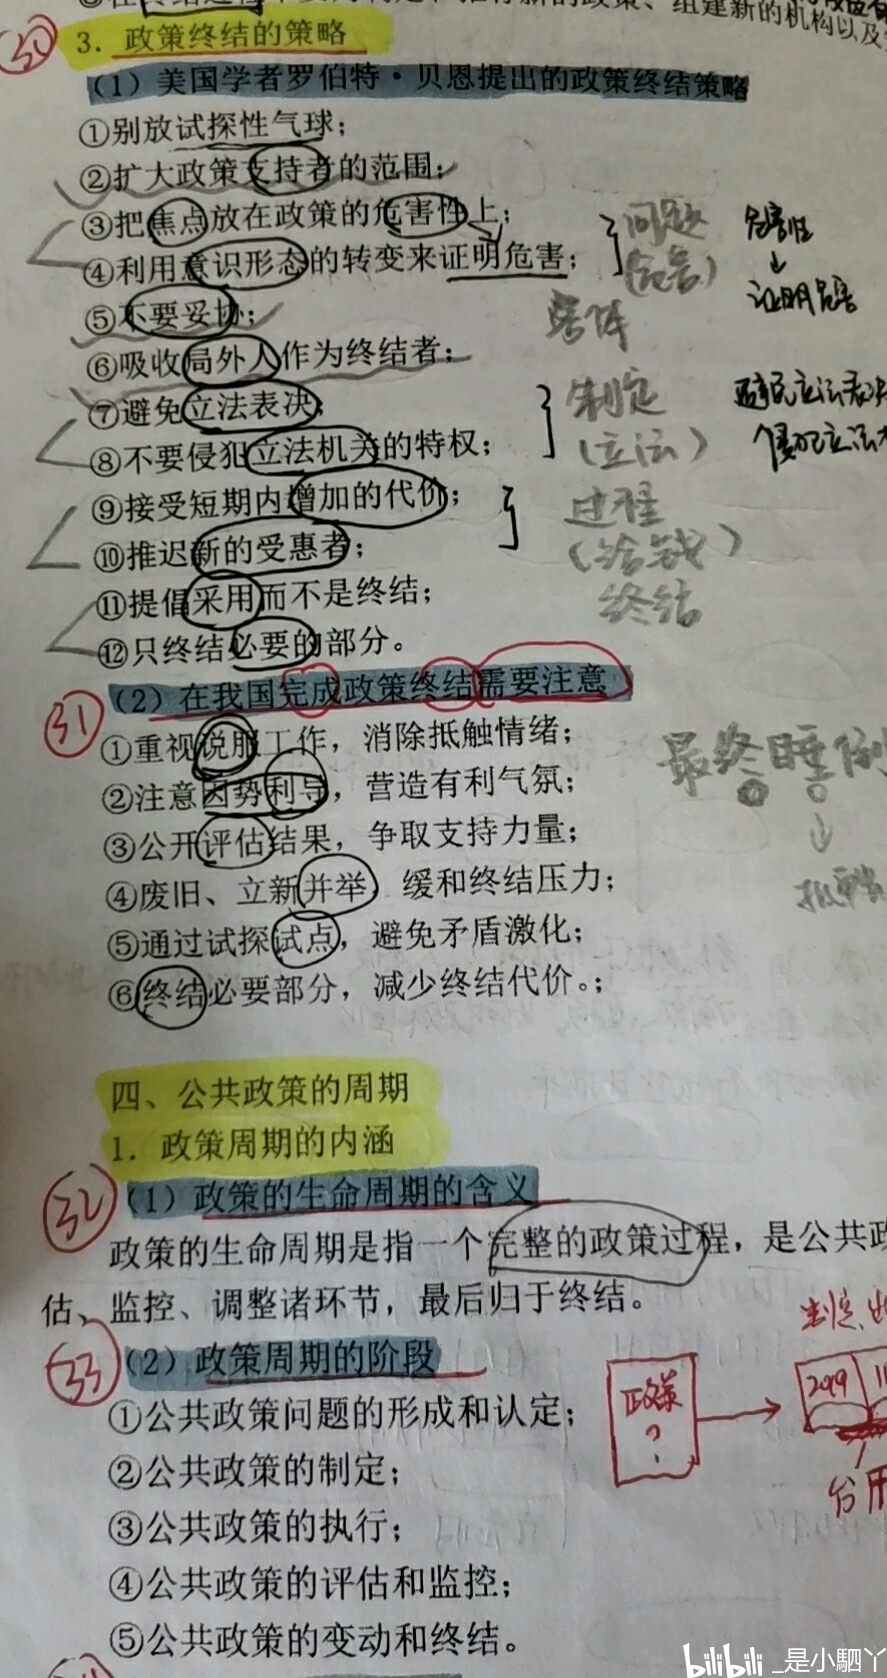 组建新的机构以及
30 3．政策终结的策略
（1）美国学者罗伯特·贝恩提出的政策终结策略
①别放试探性气球；
②扩大政策支持者的范围；
③把焦点放在政策的危害性上； 问题 危害性
④利用意识形态的转变来证明危害； （危害） ↓ 证明危害
⑤不要妥协；
⑥吸收局外人作为终结者；
⑦避免立法表决； 制定 避免立法表决
⑧不要侵犯立法机关的特权； （立法） 侵犯立法
⑨接受短期内增加的代价； 过程
⑩推迟新的受惠者； （给钱）
⑪提倡采用而不是终结； 终结
⑫只终结必要的部分。
31 （2）在我国完成政策终结需要注意
①重视说服工作，消除抵触情绪； 最终
②注意因势利导，营造有利气氛；
③公开评估结果，争取支持力量；
④废旧、立新并举，缓和终结压力；
⑤通过试探试点，避免矛盾激化；
⑥终结必要部分，减少终结代价。；
四、公共政策的周期
1．政策周期的内涵
32 （1）政策的生命周期的含义
政策的生命周期是指一个完整的政策过程，是公共政
估、监控、调整诸环节，最后归于终结。
制定
33 （2）政策周期的阶段
①公共政策问题的形成和认定； 政策？
②公共政策的制定；
③公共政策的执行；
④公共政策的评估和监控；
⑤公共政策的变动和终结。
bilibili _是小駟丫